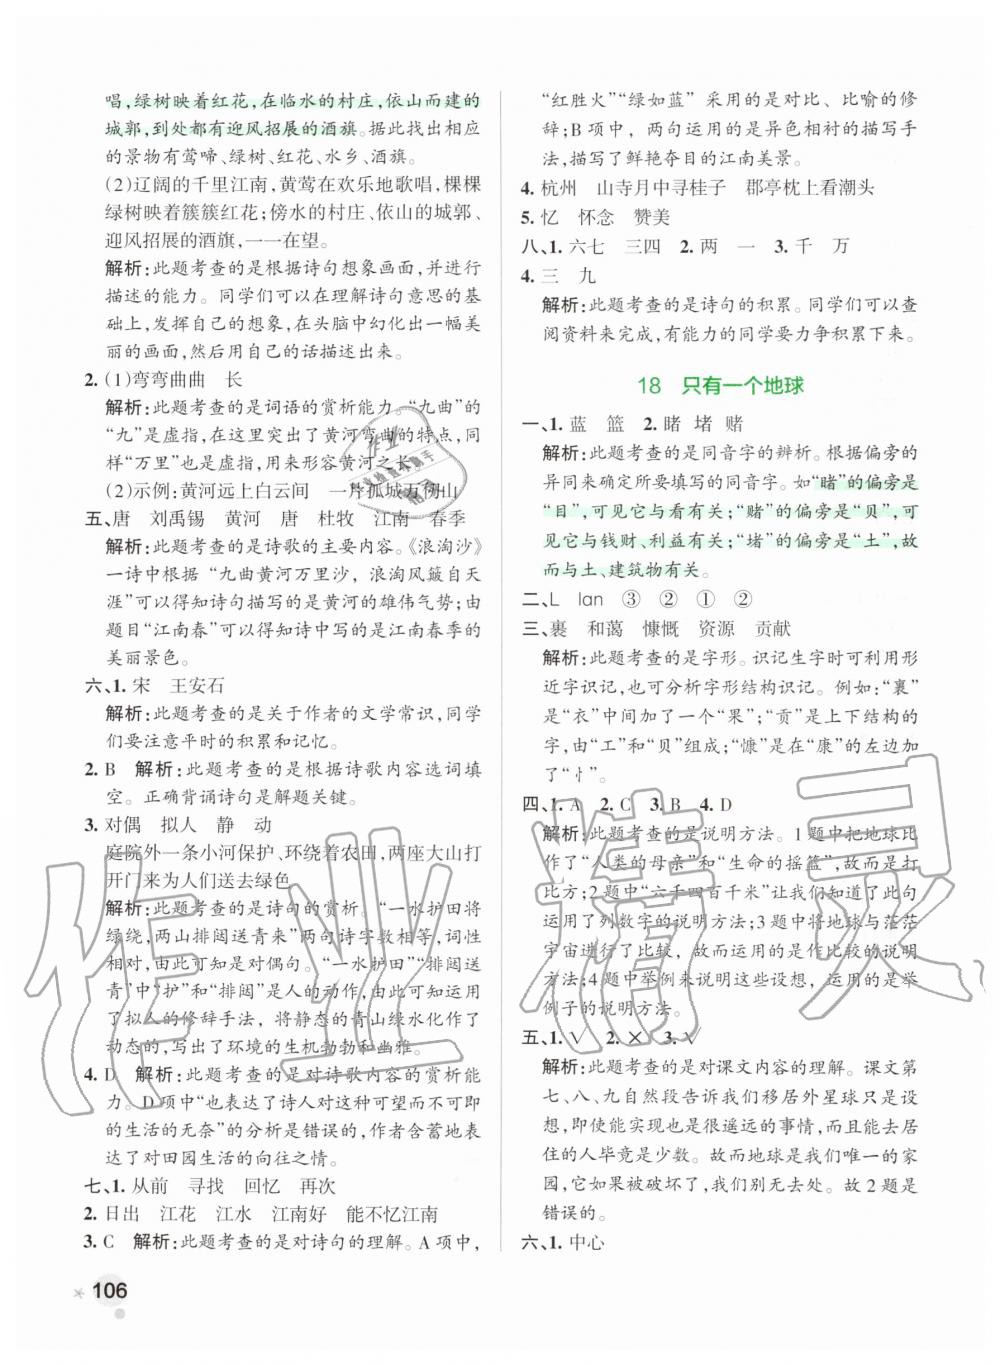 唱,绿树映着红花,在临水的村庄,依山而建的
城郭,到处都有迎风招展的酒旗。据此找出相应
的景物有莺啼、绿树、红花、水乡、酒旗。
(2)辽阔的千里江南,黄莺在欢乐地歌唱,棵棵
绿树映着簇簇红花;傍水的村庄、依山的城郭、
迎风招展的酒旗,一一在望。
解析:此题考查的是根据诗句想象画面,并进行
描述的能力。同学们可以在理解诗句意思的基
础上,发挥自己的想象,在头脑中幻化出一幅美
丽的画面,然后用自己的话描述出来。
2. (1)弯弯曲曲 长
解析:此题考查的是词语的赏析能力。“九曲”的
“九”是虚指,在这里突出了黄河弯曲的特点,同
样“万里”也是虚指,用来形容黄河之长。
(2)示例:黄河远上白云间 一片孤城万仞山
五、唐 刘禹锡 黄河 唐 杜牧 江南 春季
解析:此题考查的是诗歌的主要内容。《浪淘沙》
一诗中根据“九曲黄河万里沙,浪淘风簸自天
涯”可以得知诗句描写的是黄河的雄伟气势;由
题目“江南春”可以得知诗中写的是江南春季的
美丽景色。
六、1. 宋 王安石
解析:此题考查的是关于作者的文学常识,同学
们要注意平时的积累和记忆。
2. B 解析:此题考查的是根据诗歌内容选词填
空。正确背诵诗句是解题关键。
3. 对偶 拟人 静 动
庭院外一条小河保护、环绕着农田,两座大山打
开门来为人们送去绿色。
解析:此题考查的是诗句的赏析。“一水护田将
绿绕,两山排闼送青来”两句诗字数相等,词性
相对,由此可知是对偶句。“一水护田”“排闼送
青”中“护”和“排闼”是人的动作,由此可知运用
了拟人的修辞手法,将静态的青山绿水化作了
动态的,写出了环境的生机勃勃和幽雅。
4. D 解析:此题考查的是对诗歌内容的赏析能
力。D 项中“也表达了诗人对这种可望而不可即
的生活的无奈”的分析是错误的,作者含蓄地表
达了对田园生活的向往之情。
七、1. 从前 寻找 回忆 再次
2. 日出 江花 江水 江南好 能不忆江南
3. C 解析:此题考查的是对诗句的理解。A 项中,
106
“红胜火”“绿如蓝”采用的是对比、比喻的修
辞;B 项中,两句运用的是异色相衬的描写手
法,描写了鲜艳夺目的江南美景。
4. 杭州 山寺月中寻桂子 郡亭枕上看潮头
5. 忆 怀念 赞美
八、1. 六七 三四 2. 两 一 3. 千 万
4. 三 九
解析:此题考查的是诗句的积累。同学们可以查
阅资料来完成,有能力的同学要力争积累下来。
18 只有一个地球
一、1. 蓝 篮 2. 睹 堵 赌
解析:此题考查的是同音字的辨析。根据偏旁的
异同来确定所要填写的同音字。如“睹”的偏旁是
“目”,可见它与看有关;“赌”的偏旁是“贝”,可
见它与钱财、利益有关;“堵”的偏旁是“土”,故
而与土、建筑物有关。
二、L lan ③ ② ① ②
三、裹 和蔼 慷慨 资源 贡献
解析:此题考查的是字形。识记生字时可利用形
近字识记,也可分析字形结构识记。例如:“裹”
是“衣”中间加了一个“果”;“贡”是上下结构的
字,由“工”和“贝”组成;“慷”是在“康”的左边加
了“忄”。
四、1. A 2. C 3. B 4. D
解析:此题考查的是说明方法。1 题中把地球比
作了“人类的母亲”和“生命的摇篮”,故而是打
比方;2 题中“六千四百千米”让我们知道了此句
运用了列数字的说明方法;3 题中将地球与茫茫
宇宙进行了比较,故而运用的是作比较的说明
方法;4 题中举例来说明这些设想,运用的是举
例子的说明方法。
五、1. √ 2. × 3. √
解析:此题考查的是对课文内容的理解。课文第
七、八、九自然段告诉我们移居外星球只是设
想,即使能实现也是很遥远的事情,而能去居
住的人毕竟是少数。故而地球是我们唯一的家
园,它如果被破坏了,我们别无去处。故 2 题是
错误的。
六、1. 中心
作业精灵